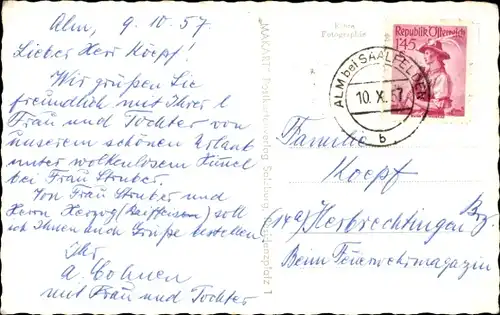 Alm, 9.10.57
Lieber Herr Koepf!
Wir grüßen Sie
freundlich mit Ihrer l
Frau und Tochter von
unserem schönen Urlaub
unter wolkenlosem Himmel
bei Frau Struber.
Von Frau Struber und
Herrn Herzog (Raiffeisen) soll
ich Ihnen auch Grüße bestellen
Ihr
A. Cohnen
mit Frau und Tochter
Echte
Fotographie
Republik Österreich
1.45
ALM bei SAALFELDEN
10. X. 57
b
Familie
Koepf
(14a) Herbrechtingen Brz.
Beim Feuerwehrmagazin